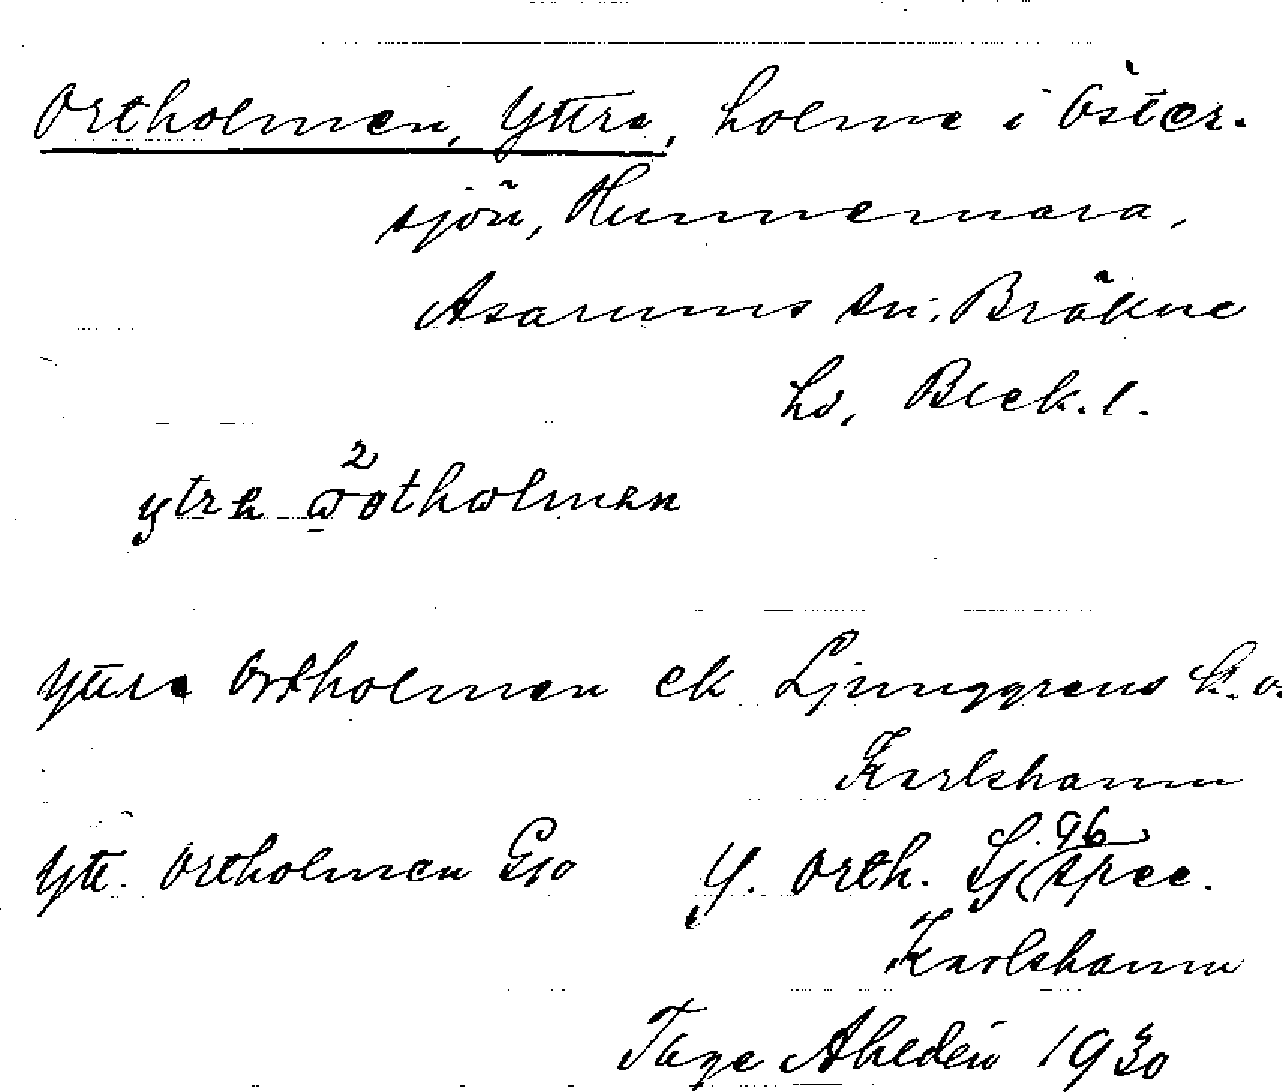 Ortholmen, Yttre, holme i Öster-
sjön, Hunnemara,
Asarums sn. Bräkne
hd, Bleck. l.
2
ytre othΩlmen
Yttre Ortholmen ek Ljunggrens k.ö.
Karlshamn
Ytt. Ortholmen Gso Y. Orth. Lj. 96 spec.
Karlshamn
Tage Ahedén 1930